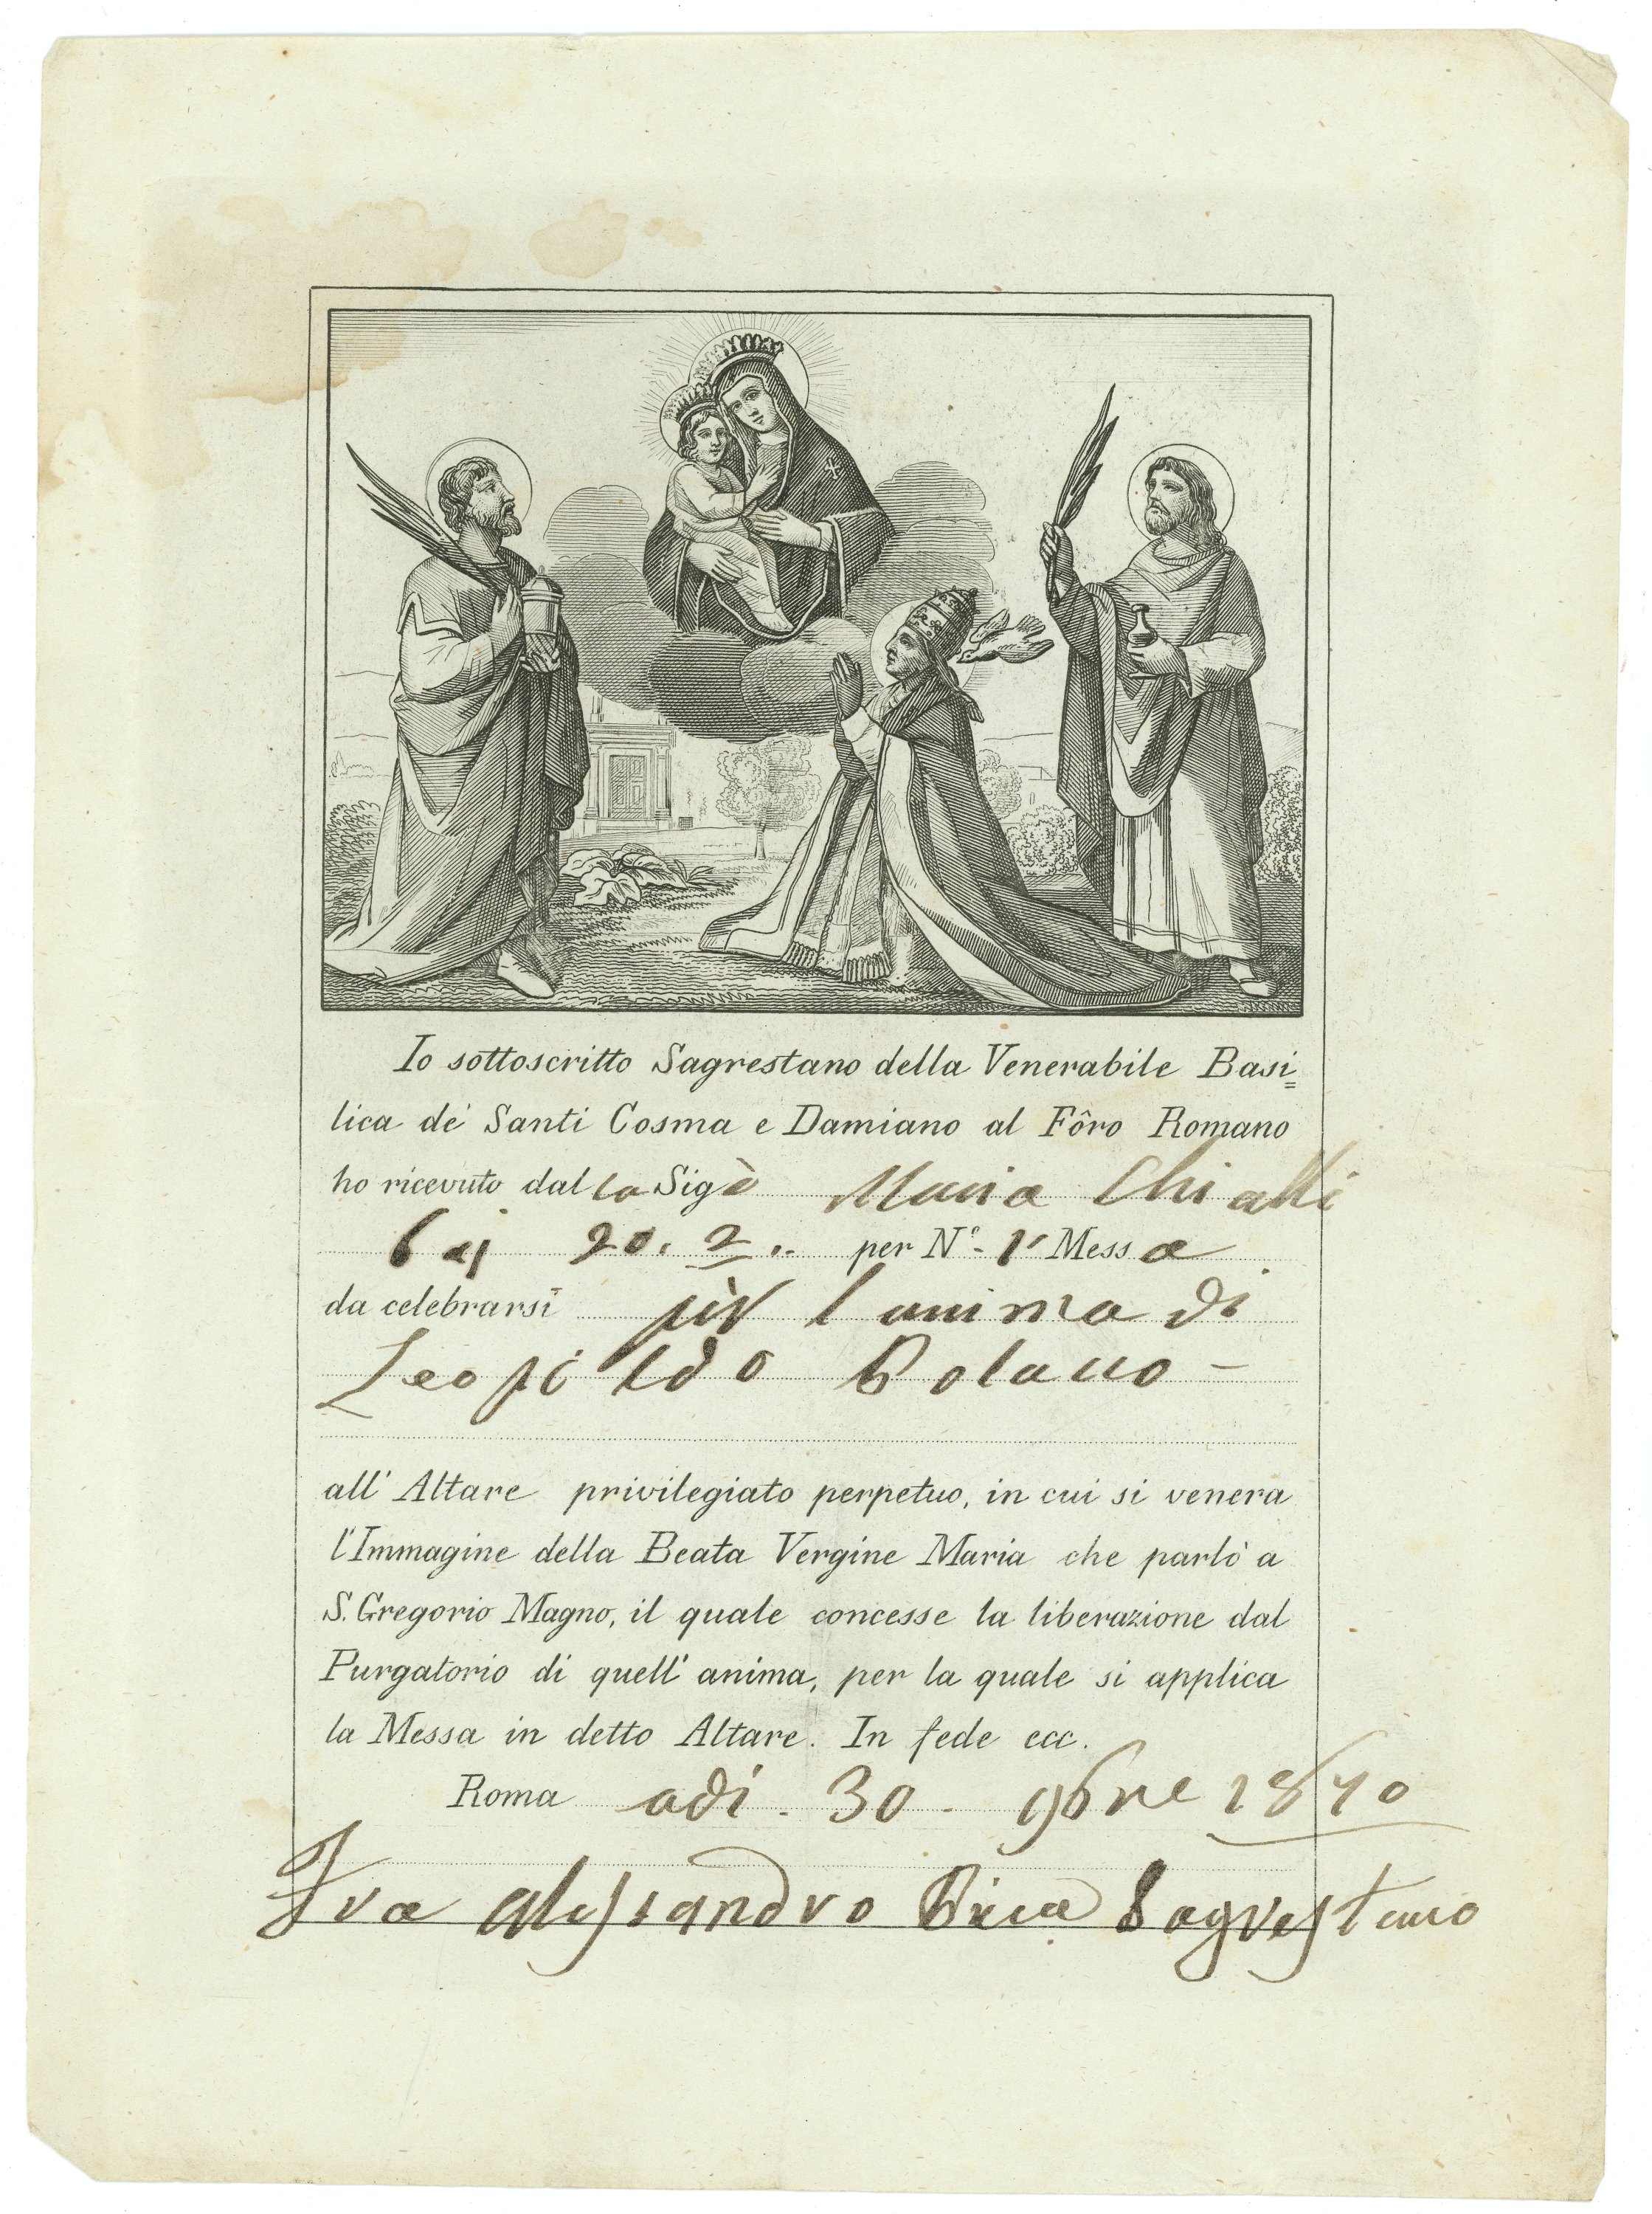 Io sottoscritto Sagrestano della Venerabile Basi=
lica de' Santi Cosma e Damiano al Fôro Romano
ho ricevuto dalla Sigª Maria Chialli
baj 20. 2.. per N.º 1 Messa
da celebrarsi per l anima di
Leopoldo Bolano -
all' Altare privilegiato perpetuo, in cui si venera
l'Immagine della Beata Vergine Maria che parlò a
S. Gregorio Magno, il quale concesse la liberazione dal
Purgatorio di quell' anima, per la quale si applica
la Messa in detto Altare. In fede ecc.
Roma adi. 30. 9bre 1870
Fra Alessandro Sagrestano